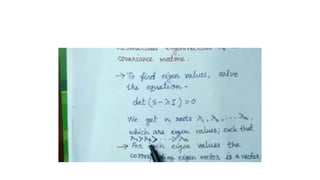 covariance matrix.
→ To find eigen values, solve
the equation -
det (S-λI) = 0
We get n roots λ₁, λ₂, ... λₙ.
which are eigen values; such that
→ For each eigen values the
eigen vector is a vector